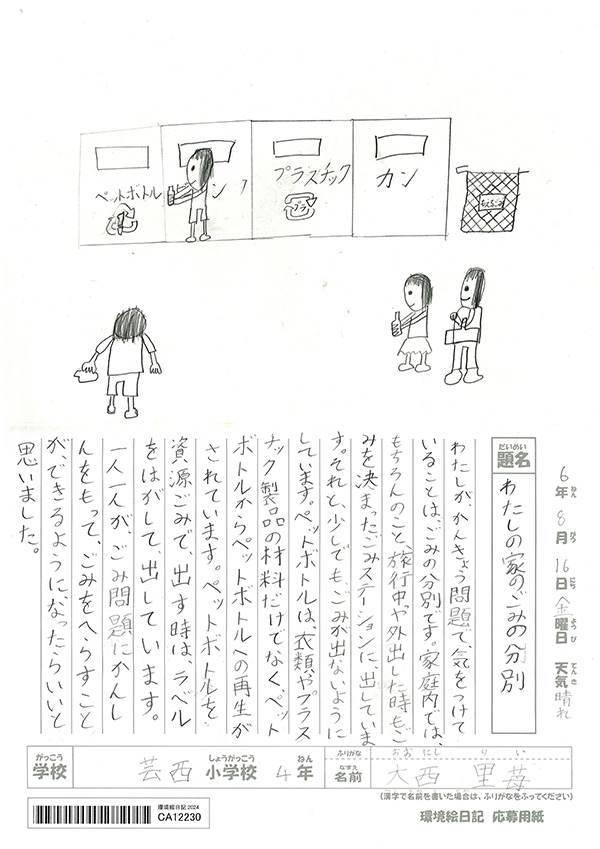 ペットボトル
ビン
プラスチック
カン
プラ
もえるごみ
6年 8月 16日 金曜日 天気 晴れ
ねん がつ にち ようび てんき
だいめい
題名
わたしの家のごみの分別
わたしが、かんきょう問題で、気をつけて
いることは、ごみの分別です。家庭内では、
もちろんのこと、旅行中や外出した時もご
みを決まったごみステーションに、出していま
す。それと、少しでもごみが出ないように
しています。ペットボトルは、衣類やプラス
チック製品の材料だけでなく、ペット
ボトルからペットボトルへの再生が
されています。ペットボトルを
資源ごみで、出す時は、ラベル
をはがして、出しています。
一人一人が、ごみ問題にかんし
んをもって、ごみをへらすこと
が、できるようになったらいいと
思いました。
がっこう しょうがっこう ねん ふりがな おおにし りい
学校 芸西 小学校 4年 なまえ 名前 大西 里苺
(漢字で名前を書いた場合は、ふりがなをふってください)
環境絵日記2024
CA12230
環境絵日記 応募用紙